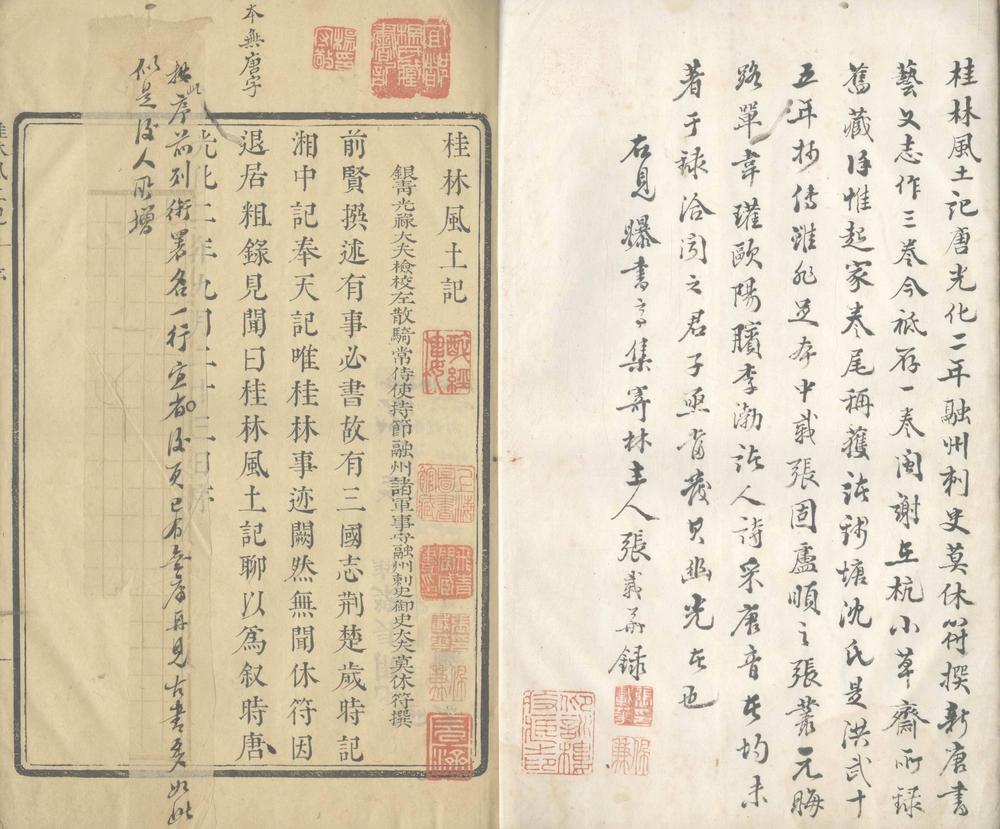 桂林風土記唐光化二年融州刺史莫休符撰新唐書
藝文志作三卷今祇存一卷閩謝在杭小草齋所録
舊藏徐惟起家卷尾稱獲諸錢塘沈氏是洪武十
五年抄傳雖非足本中載張固盧順之張叢元晦
路單韋瓘歐陽臏李渤諸人詩采唐音者均未
著于録洽聞之君子亟當發其幽光者也
右見曝書亭集寄林主人張載華録
本無唐字
桂林風土記
銀青光祿大夫檢校左散騎常侍使持節融州諸軍事守融州刺史御史大夫莫休符撰
前賢撰述有事必書故有三國志荆楚歲時記
湘中記奉天記唯桂林事迹闕然無聞休符因
退居粗錄見聞曰桂林風土記聊以爲叙時唐
光化二年九月二十三日序
按此序前列銜署名一行宜省後頁已有無庸再見古書多如此
似是後人所增